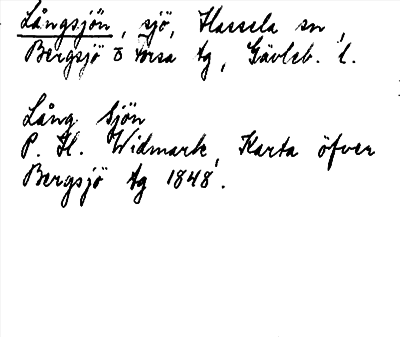 Långsjön, sjö, Hassela sn,
Bergsjö o Forsa tg, Gävleb. l.
Lång sjön
P. H. Widmark, Karta öfver
Bergsjö tg 1848.